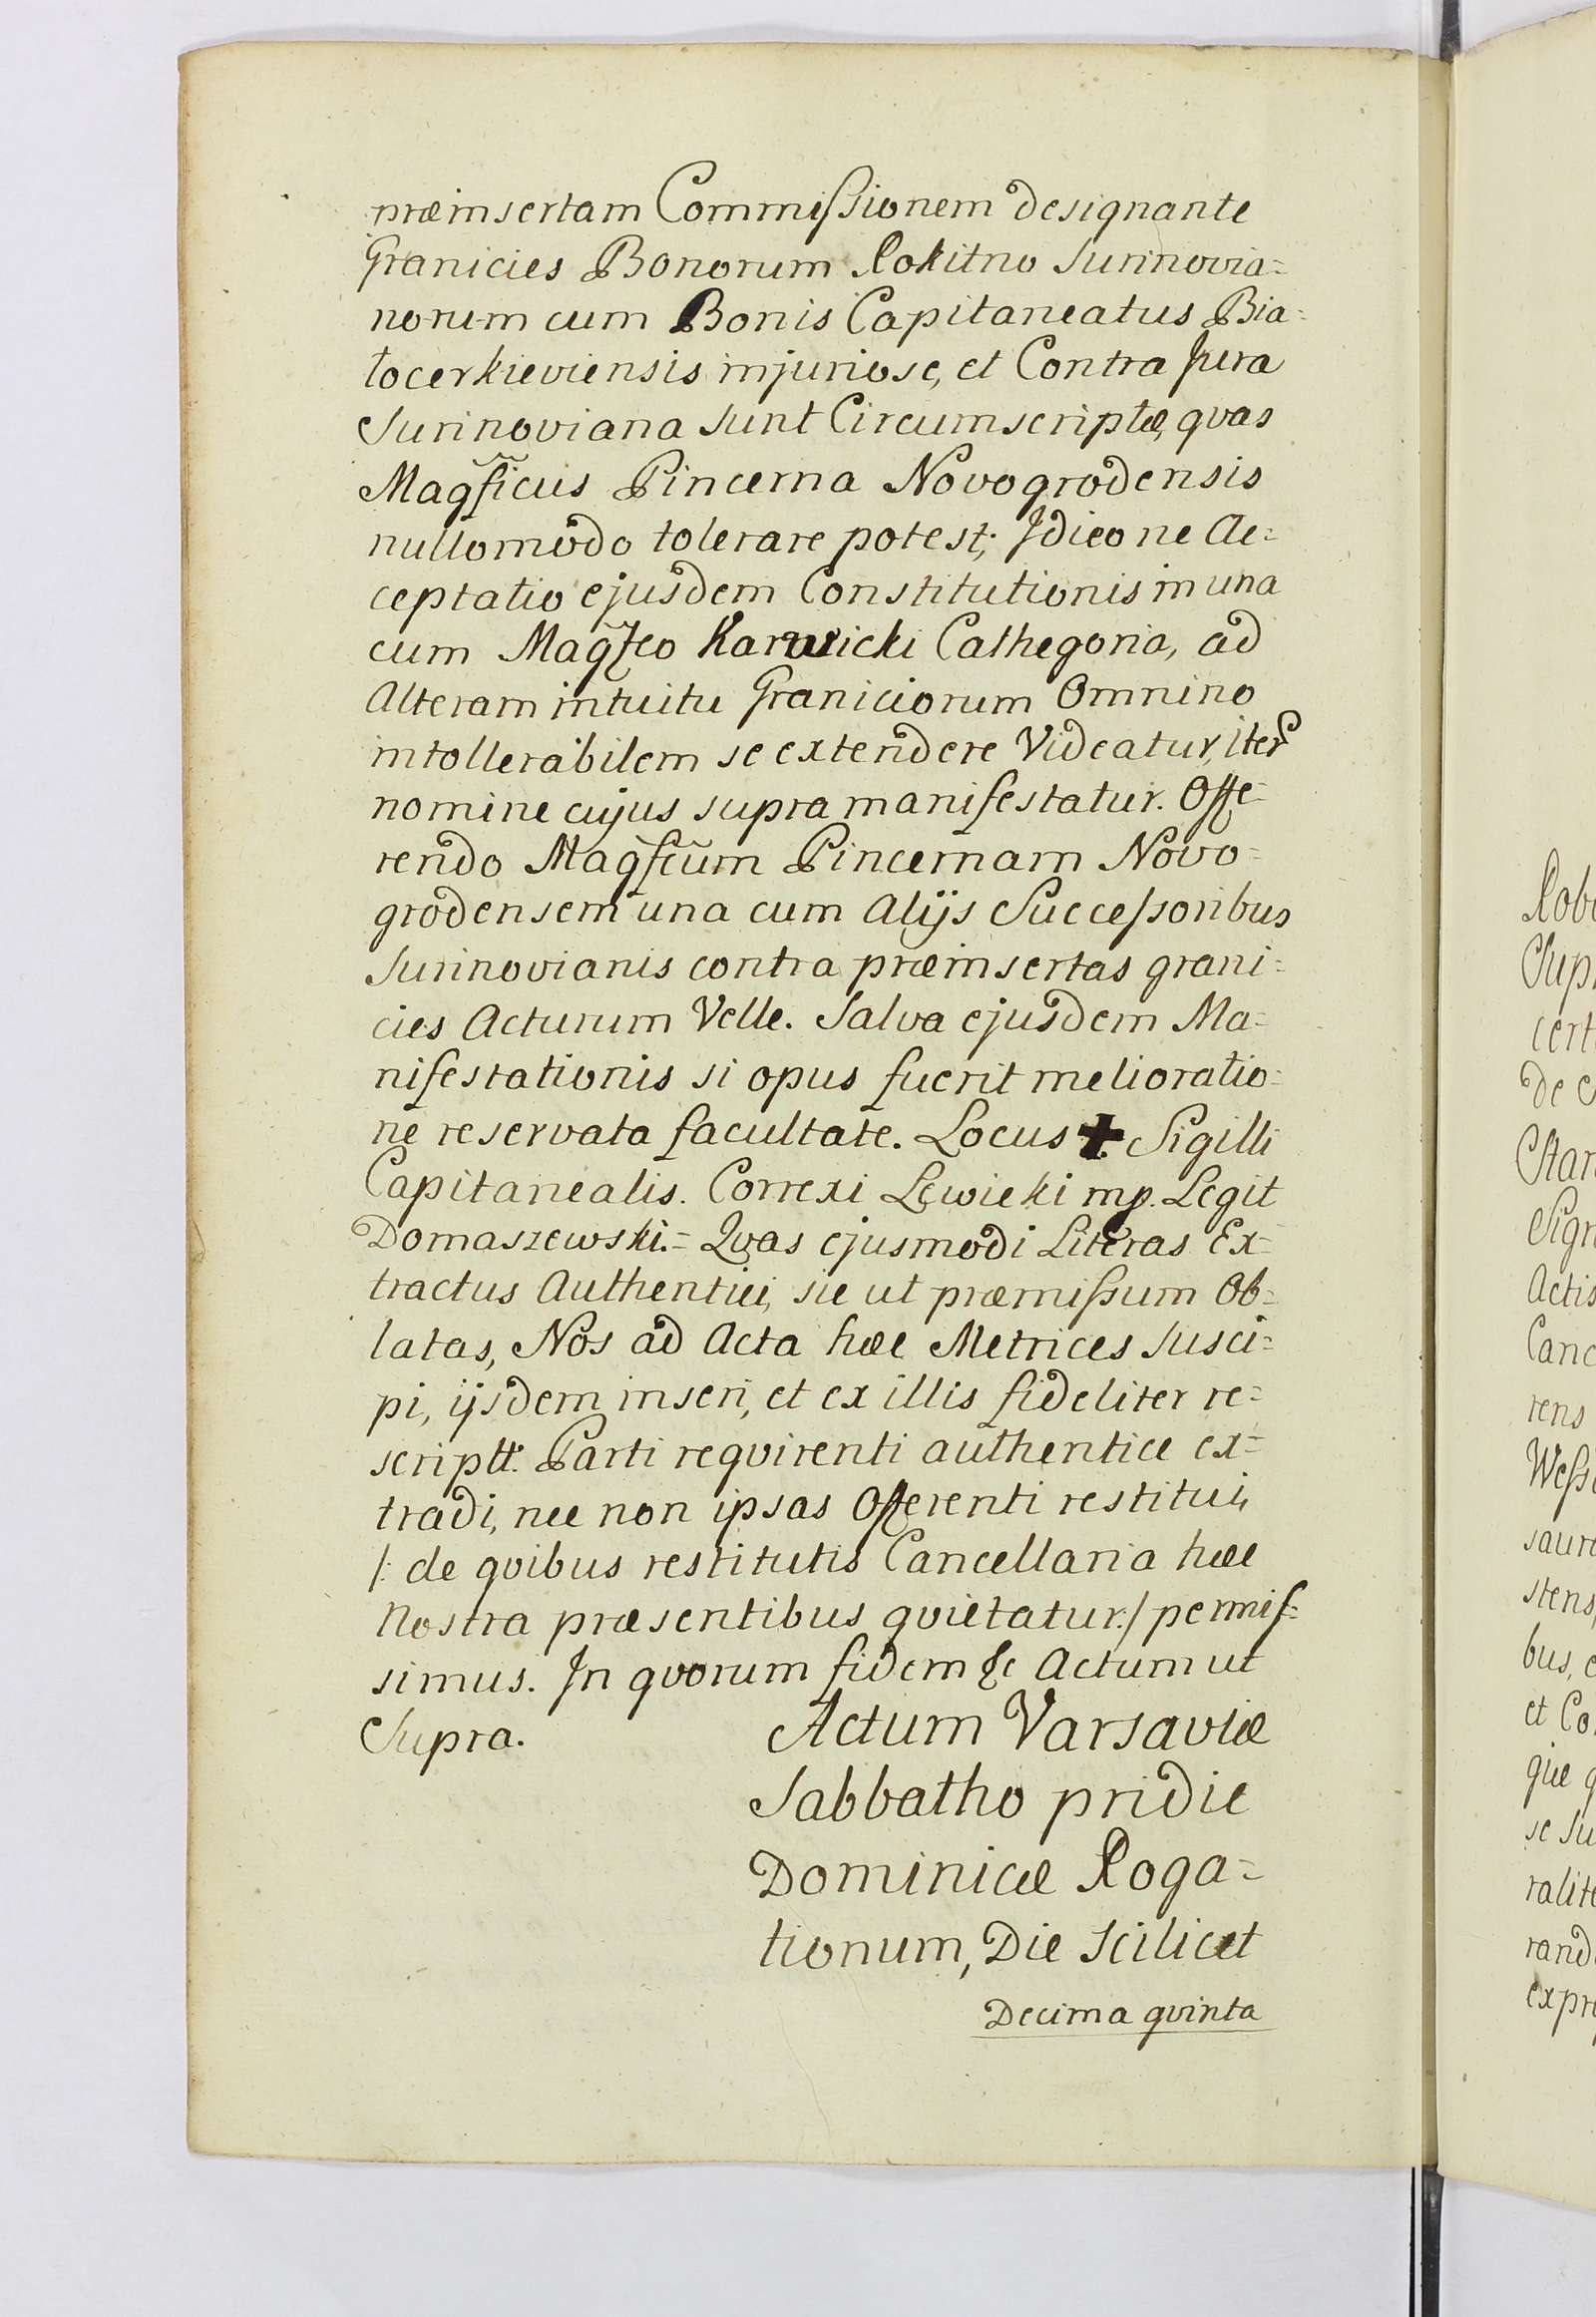 præinsertam Commissionem designante
Granicies Bonorum Rokitno Surinovia=
norum cum Bonis Capitaneatus Bia=
łocerkieviensis injuriose, et Contra Jura
Surinoviana sunt Circumscriptæ, qvas
Magficus Pincerna Novogrodensis
nullomodo tolerare potest; Idieo ne Ac=
ceptatio ejusdem Constitutionis in una
cum Magfco Karwicki Cathegoria, ad
Alteram intuitu Graniciorum Omnino
intollerabilem se extendere Videatur, iter
nomine cujus supra manifestatur. Offe=
rendo Magfcum Pincernam Novo=
grodensem una cum Alijs Successoribus
Surinovianis contra præinsertas grani=
cies Acturum Velle. Salva ejusdem Ma=
nifestationis si opus fuerit melioratio=
ne reservata facultate. Locus ✚ Sigilli
Capitanealis. Correxi Lewicki mp. Legit
Domaszewski.= Qvas ejusmodi Literas Ex=
tractus Authentici, sic ut præmissum Ob=
latas, Nos ad Acta hæc Metrices susci=
pi, ijsdem inseri, et ex illis fideliter re=
scriptt. Parti reqvirenti authentice ex=
tradi, nec non ipsas Offerenti restitui,
/: de qvibus restitutis Cancellaria hæc
Nostra præsentibus qvietatur./ permis=
simus. In qvorum fidem &c Actum ut
Supra.
Actum Varsaviæ
Sabbatho pridie
Dominicæ Roga=
tionum, Die scilicet
Decima qvinta